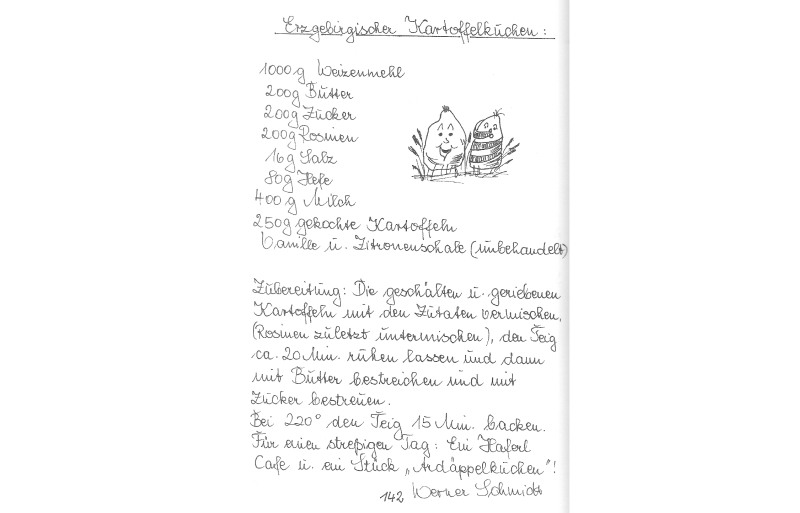 Erzgebirgischer Kartoffelkuchen:
1000g Weizenmehl
200g Butter
200g Zucker
200g Rosinen
16g Salz
80g Hefe
400g Milch
250g gekochte Kartoffeln
Vanille u. Zitronenschale (unbehandelt)
Zubereitung: Die geschälten u. geriebenen
Kartoffeln mit den Zutaten vermischen,
(Rosinen zuletzt untermischen), den Teig
ca. 20 Min. ruhen lassen und dann
mit Butter bestreichen und mit
Zucker bestreuen.
Bei 220° den Teig 15 Min. backen.
Für einen streßigen Tag: Ein Haferl
Cafe u. ein Stück „Ardäppelkuchen"!
142 Werner Schmidt